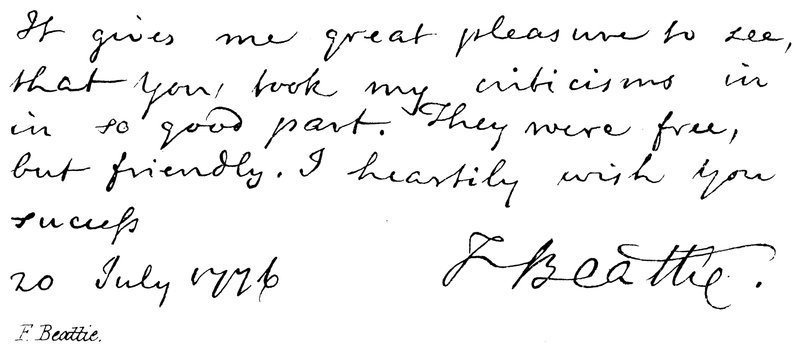 It gives me great pleasure to see,
that you, took my criticisms in
in so good part. They were free,
but friendly. I heartily wish you
succeſs
20 July 1776
F Beattie.
F. Beattie.